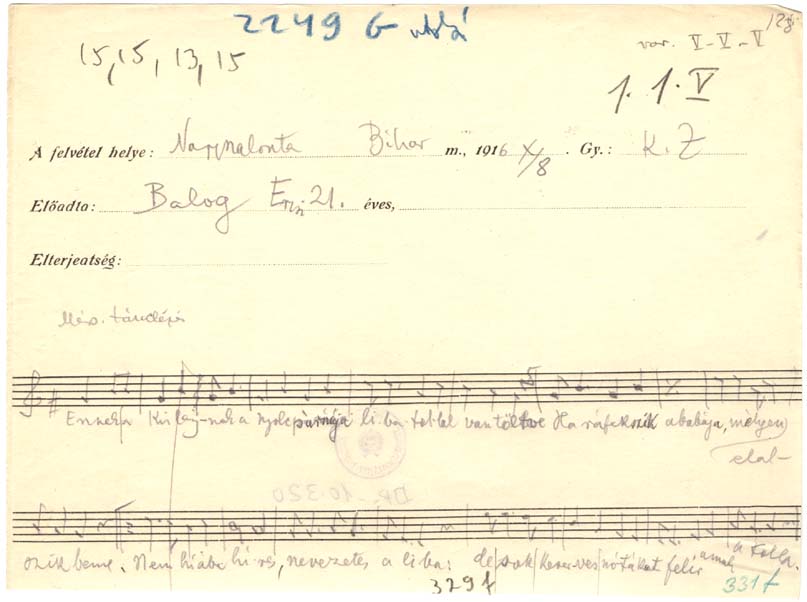 2249 G utolsó
128.
15, 15, 13, 15
var. V-V-V
1. 1. V
A felvétel helye: Nagyszalonta Bihar m., 1916 X/8. Gy.: K. Z
Előadta: Balog Erzsi 21. éves,
Elterjeatség:
Ennek a lánynak a nyoszolyája liba tollal van töltve Ha ráfekszik a babája, mélyen elal-
szik benne. Nem hiába híres, nevezetes a liba: de sok keserves nótákat felír annak a tolla.
329 f
331 f